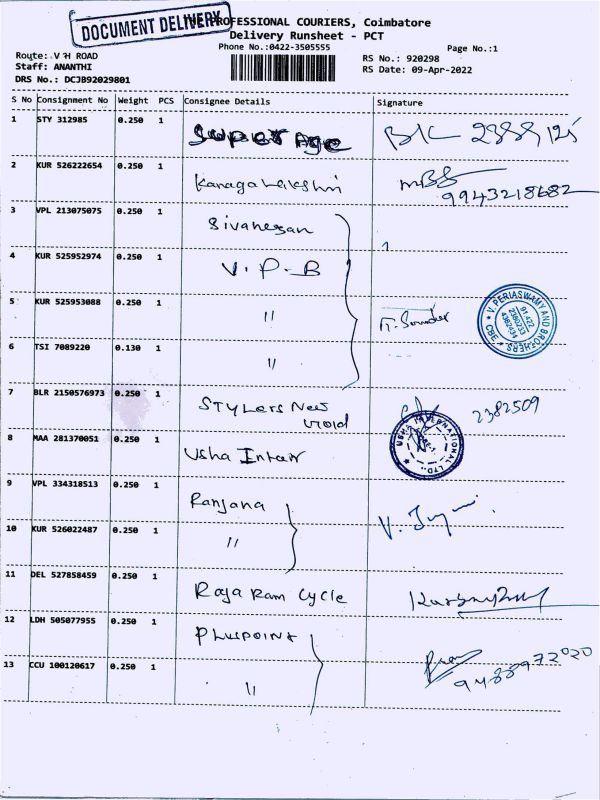 DOCUMENT DELIVERY
THE PROFESSIONAL COURIERS, Coimbatore
Delivery Runsheet - PCT
Phone No.:0422-3505555
Page No.:1
Route: V H ROAD
Staff: ANANTHI
DRS No.: DCJB92029801
RS No.: 920298
RS Date: 09-Apr-2022
S No Consignment No Weight PCS Consignee Details Signature
1 STY 312985 0.250 1 Super Age
2 KUR 526222654 0.250 1 Kanaga Lakshmi 9943218682
3 VPL 213075075 0.250 1 Sivanesan
4 KUR 525952974 0.250 1 V.P.B
5 KUR 525953088 0.250 1 "
V. PERIASWAMY AND BROTHERS
CBE
91 422
2380233
4382434
6 TSI 7089220 0.130 1 "
7 BLR 2150576973 0.250 1 Stylers New World 2382509
8 MAA 281370051 0.250 1 Usha Intern
USHA INTERNATIONAL LTD.
9 VPL 334318513 0.250 1 Ranjana
10 KUR 526022487 0.250 1 "
11 DEL 527858459 0.250 1 Raja Ram Cycle
12 LDH 505077955 0.250 1 Pluspoint
13 CCU 100120617 0.250 1 "